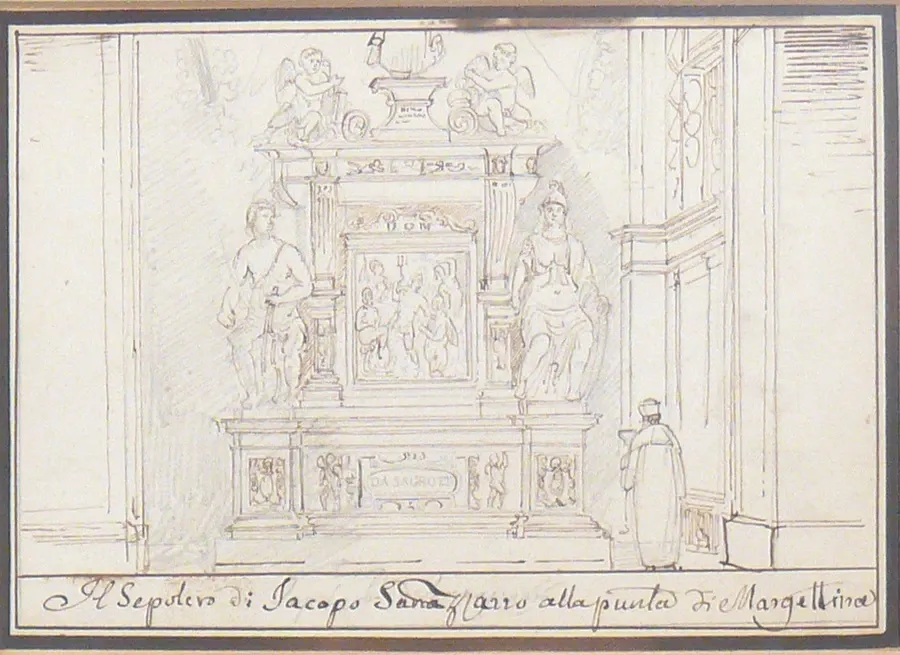 D O M
DA SACRO CI
Il Sepolcro di Jacopo Sannazzarro alla punta di Margellina